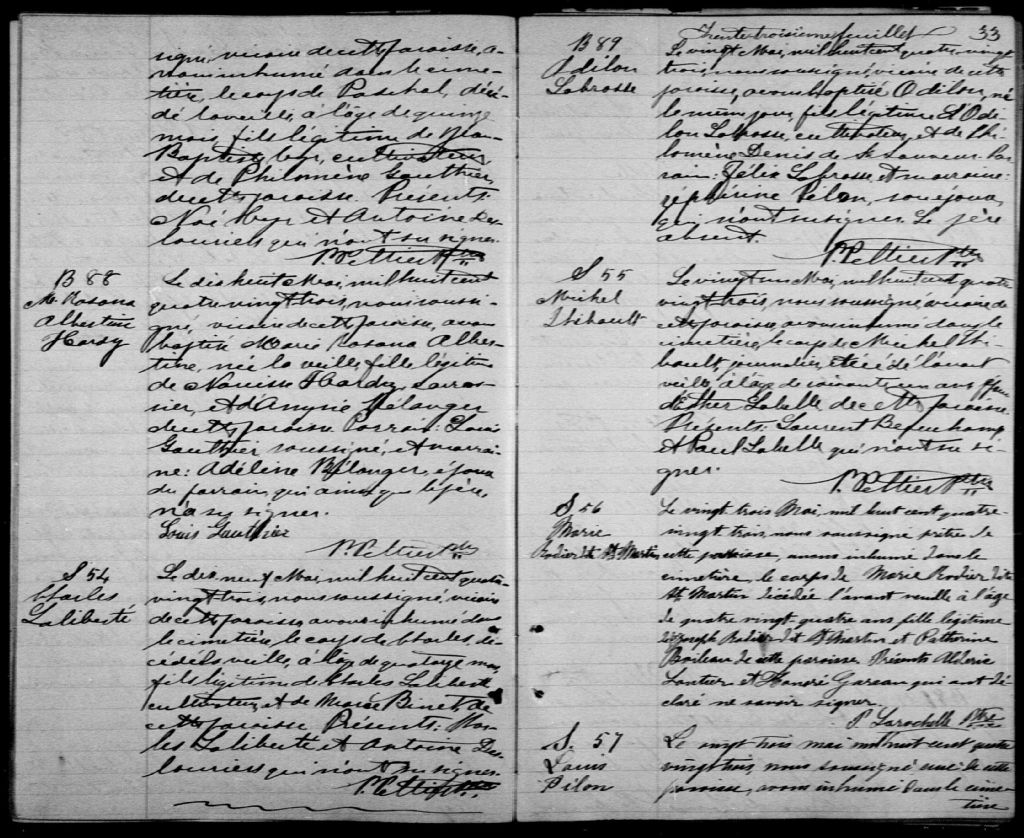 signé, vicaire de cette paroisse, a-
vons inhumé dans le cime-
tière, le corps de Paschal, décé-
dé la veille, à l'âge de quinze
mois, fils légitime de Jean-
Baptiste Cyr, cultivateur,
et de Philomène Gauthier,
de cette paroisse. Présents:
Noé Cyr et Antoine Des-
lauriers qui n'ont su signer.
P. Peltier Ptre
B 88
M. Rosana
Albertine
Hardy
Le dix huit Mai, mil huit cent
quatre vingt trois, nous soussi-
gné, vicaire de cette paroisse, avons
baptisé Marie Rosana Alber-
tine, née la veille, fille légitime
de Narcisse Hardy,
et d' Bélanger
de cette paroisse. Parrain: Louis
Gauthier soussigné, et marrai-
ne: Adéline Bélanger, épouse
du parrain, qui ainsi que le père,
n'a su signer.
Louis Gauthier
P. Peltier Ptre
S 54
Charles
Laliberté
Le dix neuf Mai, mil huit cent quatre-
vingt trois, nous soussigné, vicaire
de cette paroisse, avons inhumé dans
le cimetière, le corps de Charles, dé-
cédé la veille, à l'âge de quatorze mois,
fils légitime de Charles Laliberté
cultivateur, et de Marie Binet de
cette paroisse. Présents: Char-
les Laliberté et Antoine Des-
lauriers qui n'ont su signer.
P. Peltier Ptre
Trente troisième feuillet 33
B 89
Odilon
Labrosse
Le vingt Mai, mil huit cent quatre vingt
trois, nous soussigné, vicaire de cette
paroisse, avons baptisé Odilon, né
le même jour, fils légitime d'Odi-
lon Labrosse, cultivateur, et de Phi-
lomène Denis de St Sauveur. Par-
rain: Félix Labrosse, et marraine:
Zéphirine Pilon, son épouse,
qui n'ont su signer. Le père
absent.
P. Peltier Ptre
S 55
Michel
Thibault
Le vingt un Mai, mil huit cent quatre
vingt trois, nous soussigné, vicaire de
cette paroisse, avons inhumé dans le
cimetière, le corps de Michel Thi-
bault, journalier, décédé l'avant
veille, à l'âge de soixante ans, époux
d'Esther Labelle de cette paroisse.
Présents: Laurent Beauchamp
et Paul Labelle qui n'ont su si-
gner.
P. Peltier Ptre
S 56
Marie
Rodier dit St Martin
Le vingt trois Mai, mil huit cent quatre-
vingt trois, nous soussigné prêtre de
cette paroisse, avons inhumé dans le
cimetière, le corps de Marie Rodier dite
St Martin décédée l'avant veille à l'âge
de quatre vingt quatre ans fille légitime
de Joseph Rodier dit St Martin et Catherine
Boileau de cette paroisse. Présents Alderic
Lantier et Honoré Gareau qui ont dé-
claré ne savoir signer.
P. Larochelle Ptre
S. 57
Louis
Pilon
Le vingt trois mai mil huit cent quatre
vingt trois, nous soussigné curé de cette
paroisse, avons inhumé dans le cime-
tière